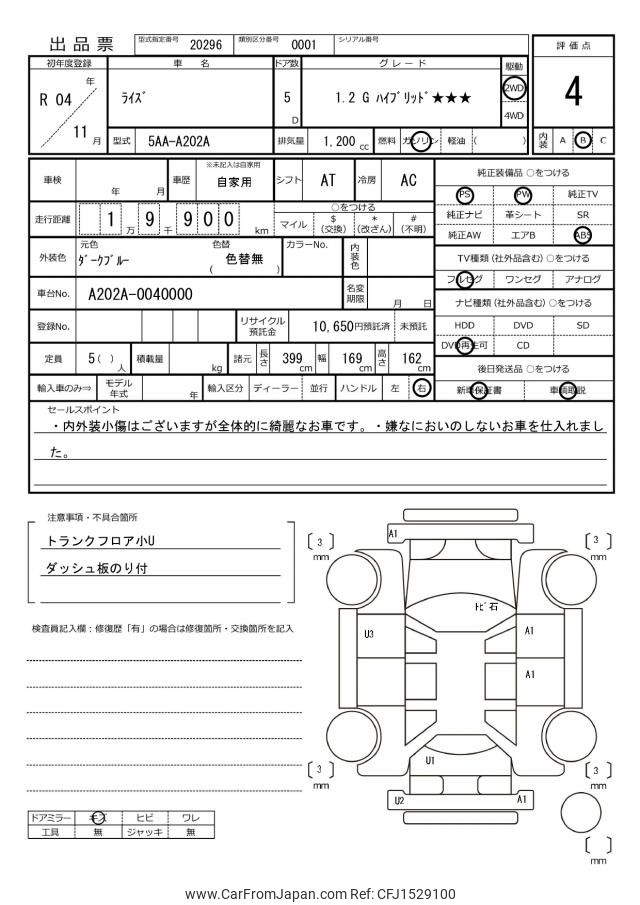 出品票 型式指定番号 20296 類別区分番号 0001 シリアル番号
評価点
初年度登録 車名 ドア数 グレード 駆動
R 04 年 ﾗｲｽﾞ 5 D 1.2 G ﾊｲﾌﾞﾘｯﾄﾞ★★★ 2WD 4
11 月 4WD
型式 5AA-A202A 排気量 1,200 cc 燃料 ガソリン 軽油 ( ) 内装 A B C
車検 年 月 車歴 ※未記入は自家用 自家用 シフト AT 冷房 AC 純正装備品 ○をつける
PS PW 純正TV
走行距離 1 万 9 千 9 0 0 km ○をつける
マイル $ (交換) * (改ざん) # (不明)
純正ナビ 革シート SR
純正AW エアB ABS
外装色 元色 ﾀﾞｰｸﾌﾞﾙｰ 色替 ( 色替無 ) カラーNo. 内装色
TV種類 (社外品含む) ○をつける
フルセグ ワンセグ アナログ
車台No. A202A-0040000 名変期限 月 日
ナビ種類 (社外品含む) ○をつける
登録No. リサイクル預託金 10,650円預託済 未預託
HDD DVD SD
DVD再生可 CD
定員 5 ( ) 人 積載量 kg 諸元 長さ 399 cm 幅 169 cm 高さ 162 cm
後日発送品 ○をつける
輸入車のみ⇒ モデル年式 年 輸入区分 ディーラー 並行 ハンドル 左 右
新車保証書 車輌取説
セールスポイント
・内外装小傷はございますが全体的に綺麗なお車です。・嫌なにおいのしないお車を仕入れまし
た。
注意事項・不具合箇所
トランクフロア小U
ダッシュ板のり付
検査員記入欄：修復歴「有」の場合は修復箇所・交換箇所を記入
A1
3 mm
3 mm
ﾄﾋﾞ石
U3
A1
A1
U1
3 mm
3 mm
U2
A1
mm
ドアミラー キズ ヒビ ワレ
工具 無 ジャッキ 無
www.CarFromJapan.com Ref: CFJ1529100